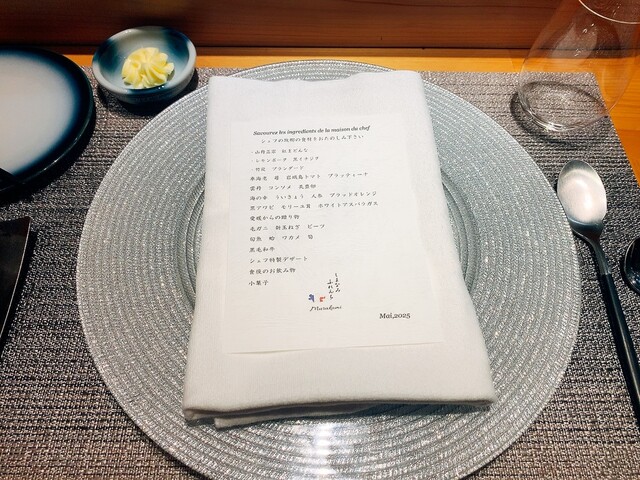 Savourez les ingredients de la maison du chef
シェフの故郷の食材をおたのしみ下さい
・レモンポーク 黒イチジク
・竹炭 ブランダード
車海老 苺 岩城島トマト ブラッティーナ
雲丹 コンソメ 乳
海の幸 ういきょう 人参 ブラッドオレンジ
黒アワビ モリーユ茸 ホワイトアスパラガス
愛媛からの贈り物
毛ガニ 新玉ねぎ ビーツ
旬魚 蛤 ワカメ 筍
黒毛和牛
シェフ特製デザート
食後のお飲み物
小菓子
しまなみ
ふれんち
Murakami
Mai,2025